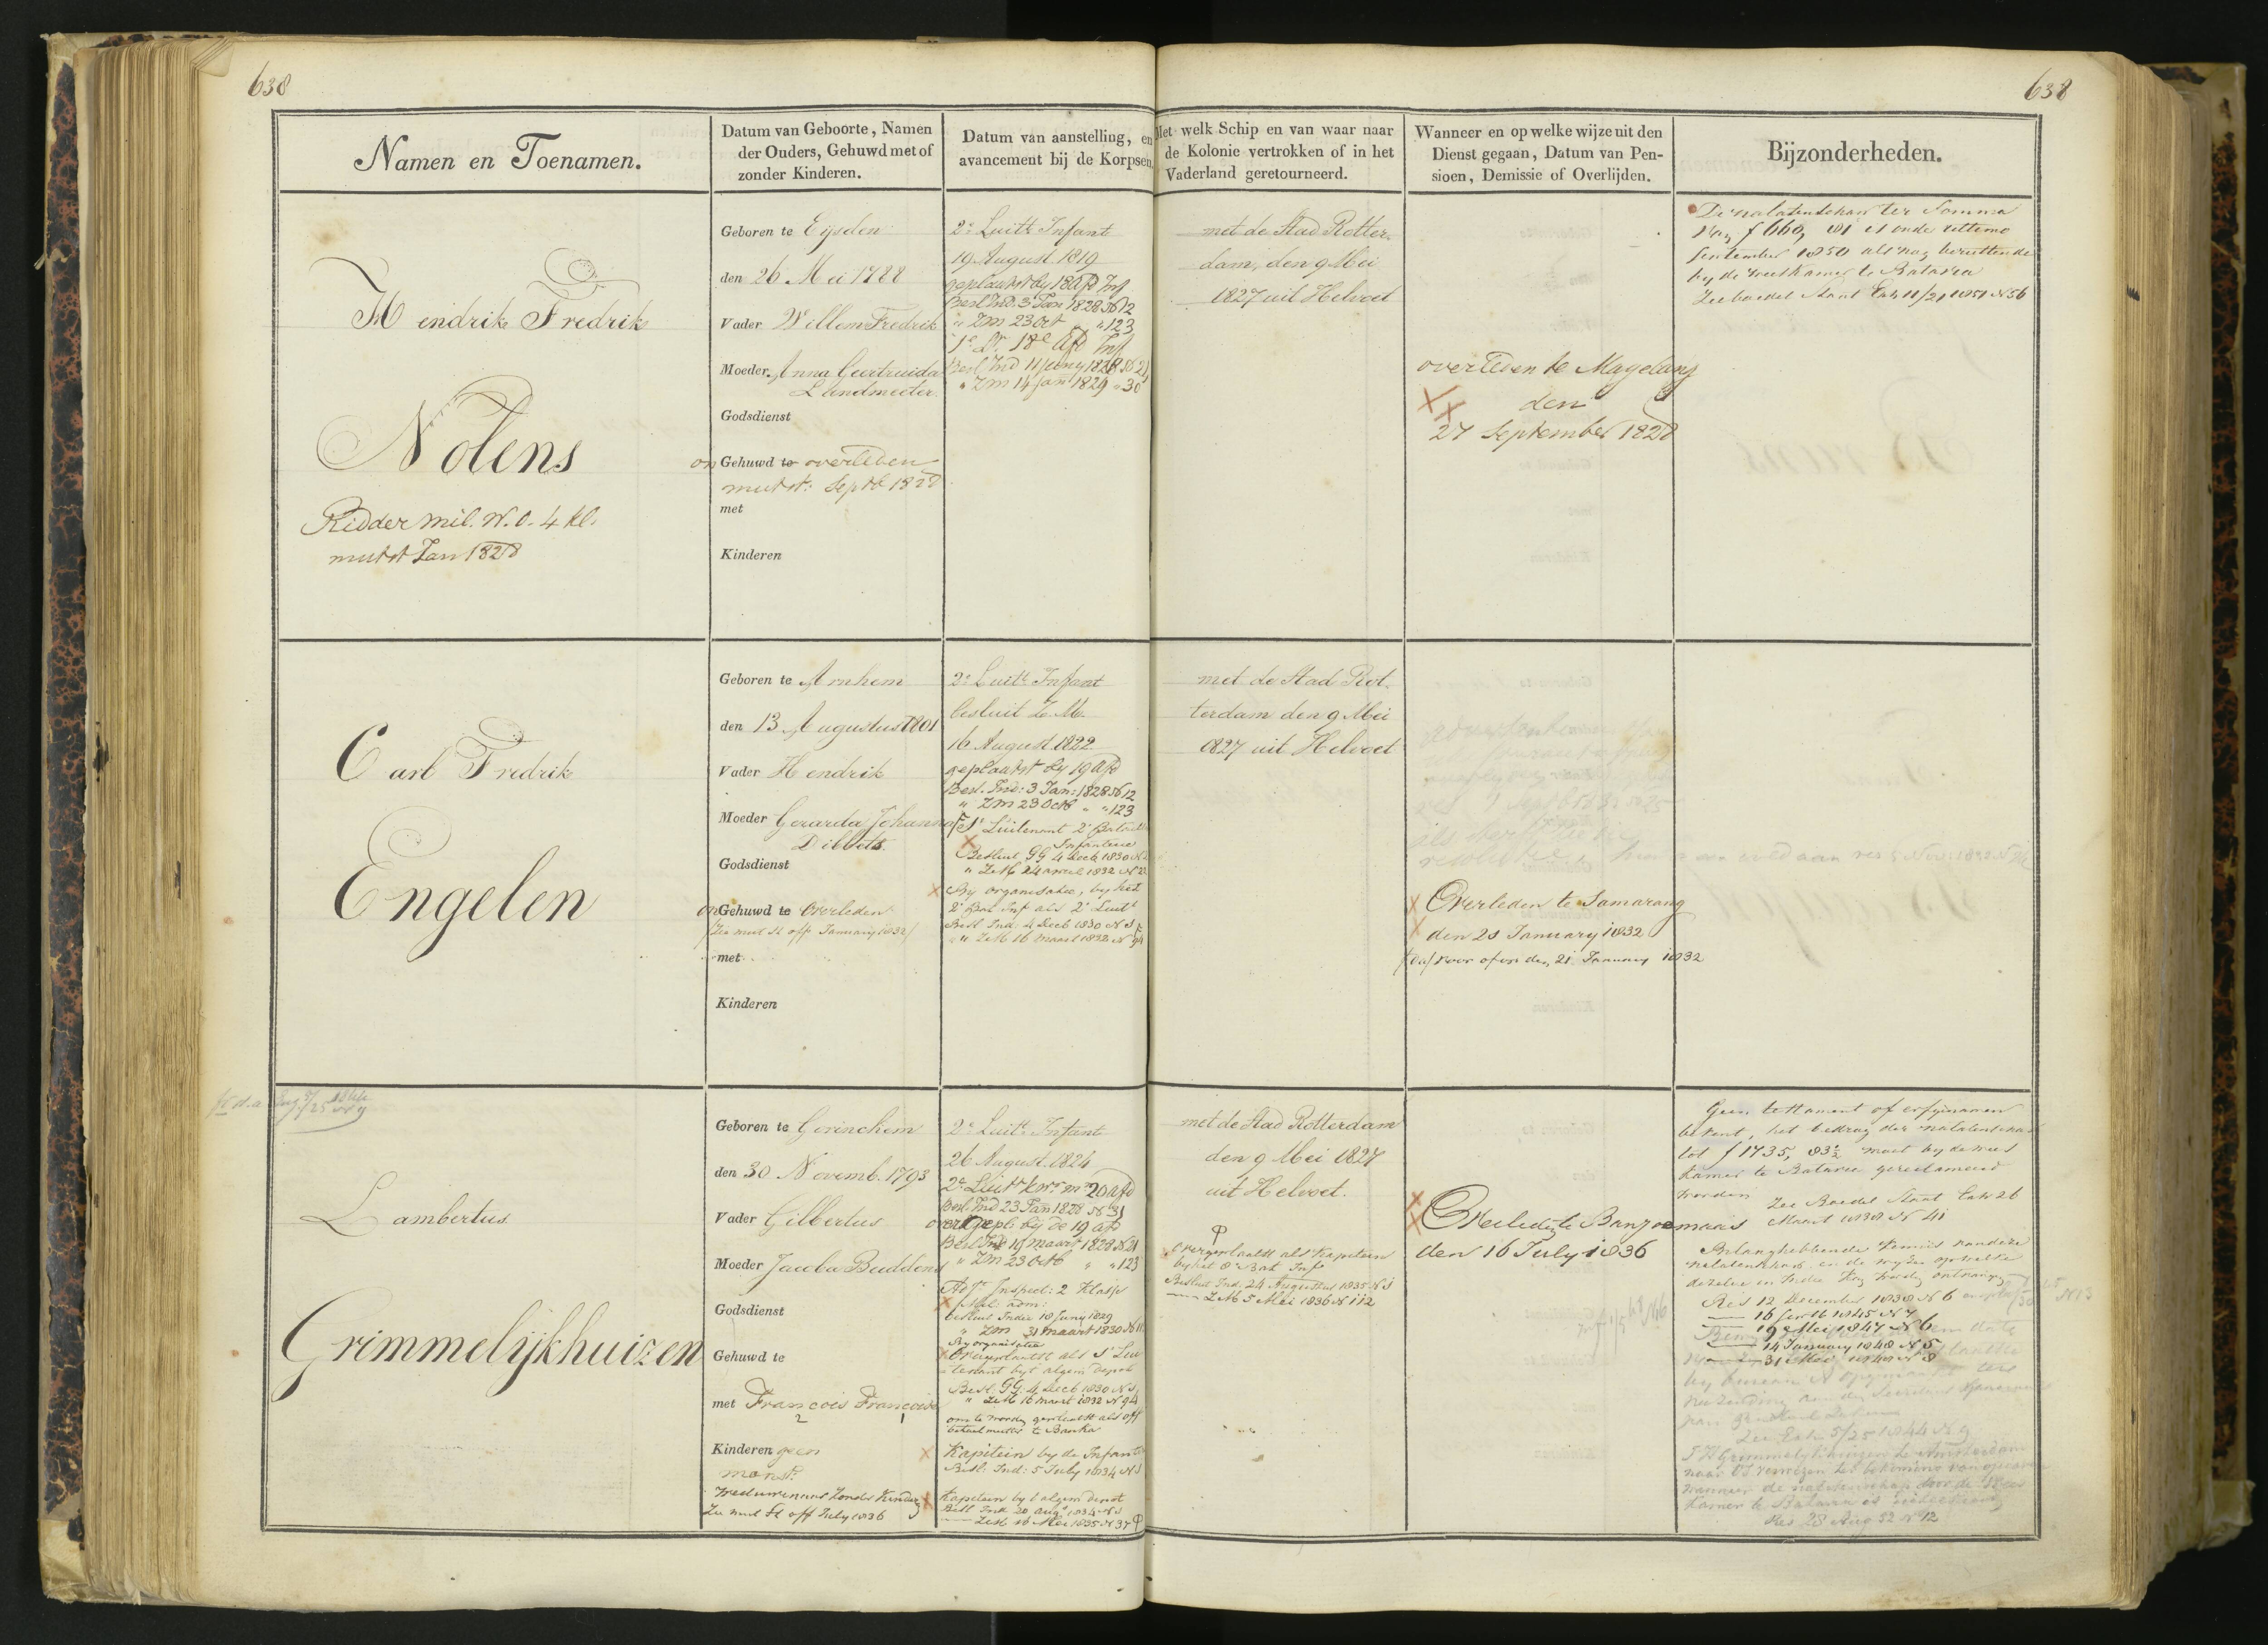 638
638
Namen en Toenamen.
Datum van Geboorte, Namen
der Ouders, Gehuwd met of
zonder Kinderen.
Datum van aanstelling, en
avancement bij de Korpsen.
Met welk Schip en van waar naar
de Kolonie vertrokken of in het
Vaderland geretourneerd.
Wanneer en op welke wijze uit den
Dienst gegaan, Datum van Pen-
sioen, Demissie of Overlijden.
Bijzonderheden.
Hendrik Fredrik
Nolens
Ridder mil. W. O. 4 kl.
mutst Jan 1828
Geboren te Eijsden
den 26 Mei 1788
Vader Willem Fredrik
Moeder Anna Geertruida
Landmeeter
Godsdienst
on Gehuwd te overleden
mutst: Septb 1828
met
Kinderen
2e Luitt Infant
19 August 1819
geplaatst by 18 afd Inf
Besl Ind: 3 Jan 1828 N 12
" ZM 23 Oct " " 123
1e Lt 18e Afd Inf
Besl Ind 11 Juny 1828 N 21
" ZM 14 Jan 1829 " 30
met de Stad Rotter-
dam, den 9 Mei
1827 uit Helvoet
overleden te Magelang
den
27 September 1828
De nalatenschap ter Somma
van f 660, 81 is onder ultimo
September 1850 als nog berustende
by de weeskamer te Batavia
Zie boedel Staat Exh 11/21 1851 N 56
Carl Fredrik
Engelen
Geboren te Arnhem
den 13 Augustus 1801
Vader Hendrik
Moeder Gerarda Johanna
Dibbets
Godsdienst
on Gehuwd te Overleden
/Zie mut St off January 1832/
met
Kinderen
2e Luitt Infant
besluit Z. M.
16 August 1822
geplaatst by 19 afd
Besl. Ind: 3 Jan: 1828 N 12
" ZM 23 Octb " " 123
1e Luitenant 2e Bataill
Infanterie
Besluit GG 4 Decb 1830 N
" ZM 24 april 1832 N
By organisatie, by het
2e Bat Inf als 2e Luitt
Besl Ind: 4 Decb 1830 N 1
" ZM 16 maart 1832 N 94
met de Stad Rot-
terdam den 9 Mei
1827 uit Helvoet
Overleden te Samarang
den 20 January 1832
voor of on den 21 January 1832
Lambertus
Grimmelijkhuizen
Geboren te Gorinchem
den 30 Novemb. 1793
Vader Gilbertus
Moeder Jacoba Buddens
Godsdienst
Gehuwd te
met Francois Francoise
2 1
Kinderen geen
monst:
Weduwenaar zonder Kinders
Zie mut St off July 1836
2e Luitt Infant
26 August 1824
2e Luitt 20 afd
Besl. Ind 23 Jan 1828 N 31
over gepl. by de 19 afd
Besl Ind 19 maart 1828 N 21
" ZM 23 Octb " " 123
Adjt Inspect: 2 Klasse
Mil: adm:
besluit Indie 18 Juny 1829
" ZM 31 maart 1830 N
By organisatie
Overgeplaatst als 1e Lui
tenant byt algem Depot
Besl. GG 4 Decb 1830 N 1
" ZM 16 maart 1832 N 94
om te worden geplaatst als off
betaalmeester te Banka
Kapitein by de Infant
Besl: Ind: 5 July 1834 N 1
Kapitein by t algem Depot
Besl Ind 20 Augs 1834 N 1
ZM 16 Mei 1835 N 37
met de Stad Rotterdam
den 9 Mei 1827
uit Helvoet.
Overgeplaatst als Kapitein
by het 8e Bat Inf
Besluit Ind: 24 Augustus 1835 N 1
ZM 5 Mei 1836 N 112
Overleden te Banjoemaas
den 16 July 1836
Geen testament of erfgenamen
bekent, het bedrag der nalatenschap
tot f 1735, 83½ moet by de wees
kamer te Batavia gereclameerd
worden
Zie Boedel Staat Exh 26
Maart 1838 N 41
Belanghebbende kennis van deze
nalatenschap en de wyze op welke
dezelve in Indie kan worden ontvangen
Res 12 December 1838 N 6
16 Jan 1845 N 4
19 Mei 1847 N 6
14 January 1848 N 5
31 Mei 1848 N 8
Zie Exh 5/25 1844 N 9
Res 28 Aug 52 N 12